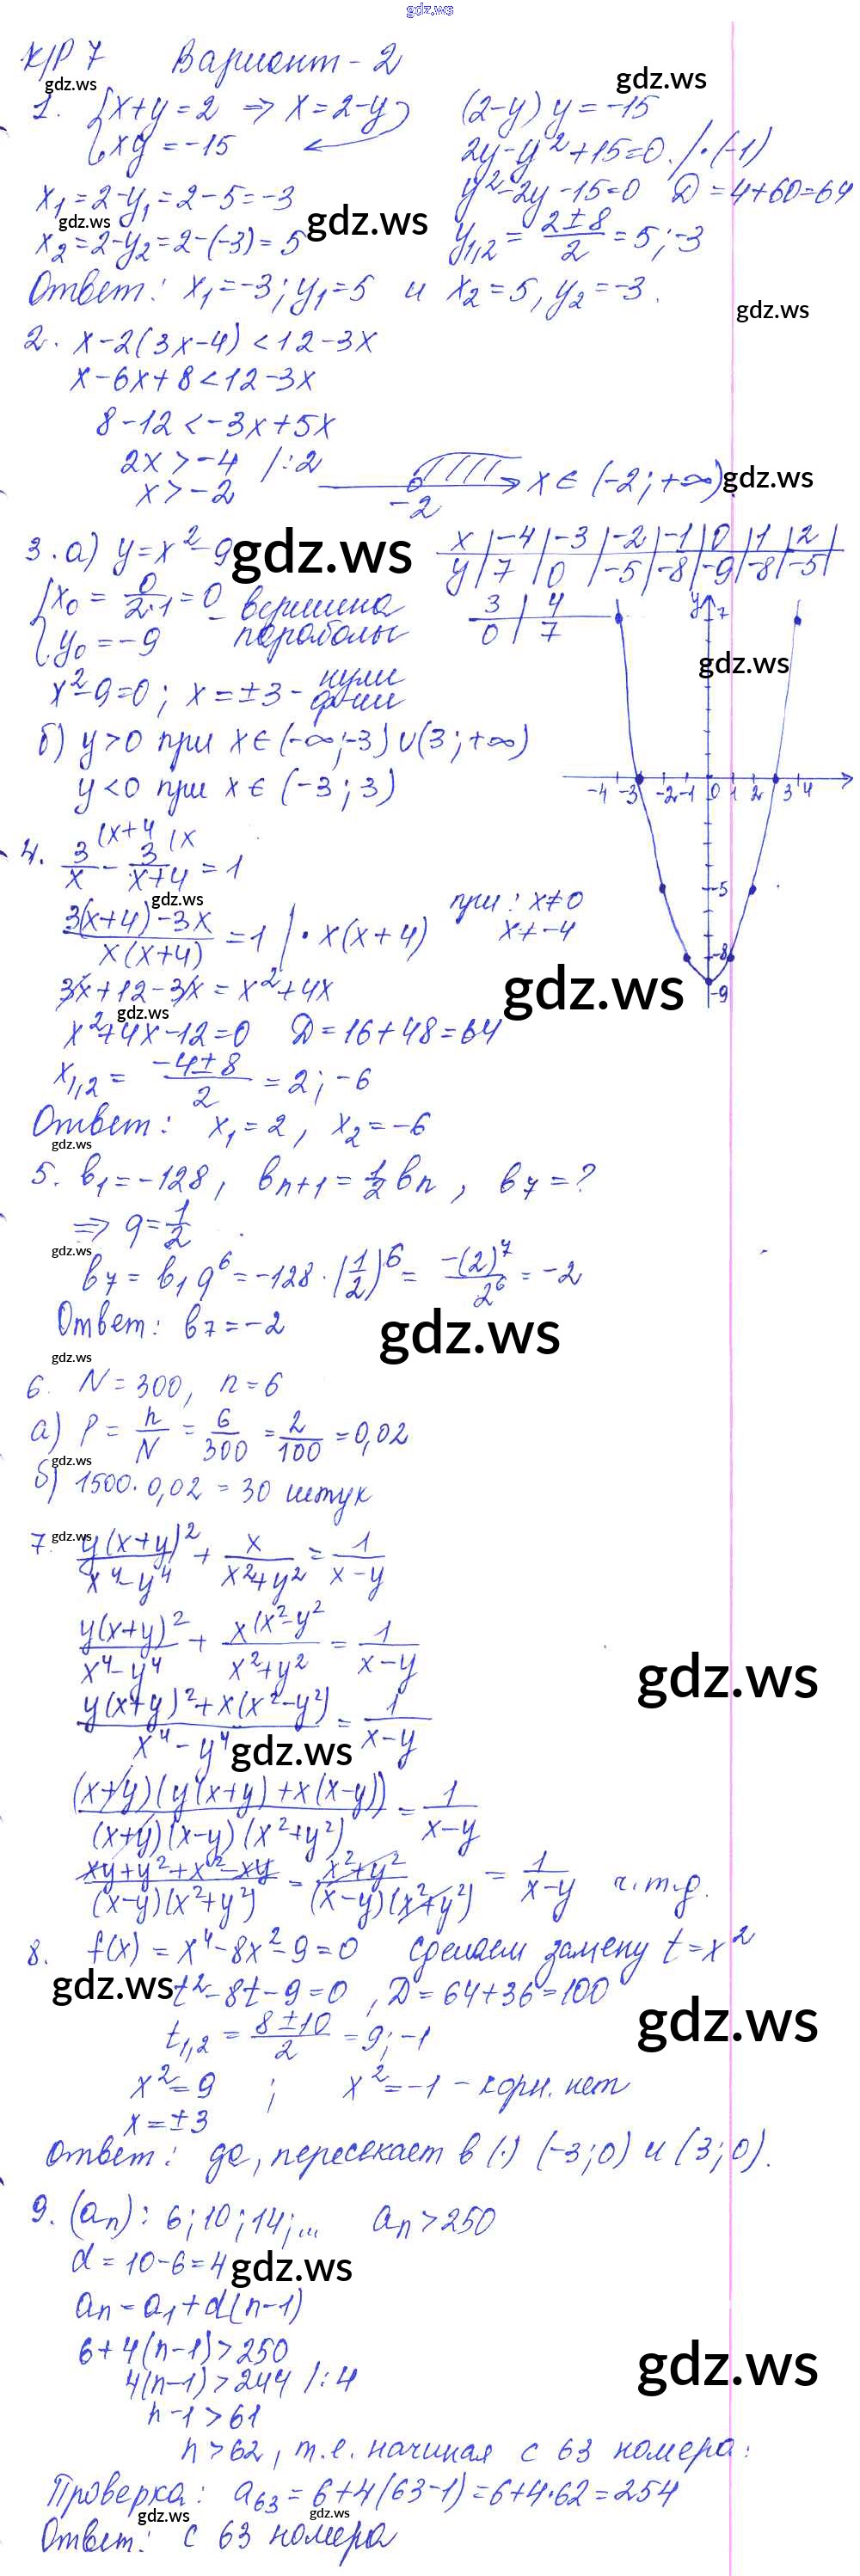 gdz.ws
К/Р 7 Вариант - 2
gdz.ws gdz.ws
1. { x+y=2 ⇒ x=2-y (2-y)y=-15
{ xy=-15 2y-y²+15=0 /·(-1)
x₁=2-y₁=2-5=-3 y²-2y-15=0 D=4+60=64
gdz.ws gdz.ws
x₂=2-y₂=2-(-3)=5 y₁,₂ = (2±8)/2 = 5; -3
Ответ: x₁=-3; y₁=5 и x₂=5, y₂=-3.
gdz.ws
2. x-2(3x-4)<12-3x
x-6x+8<12-3x
8-12<-3x+5x
2x>-4 /:2
x>-2 -2 x∈(-2;+∞)
gdz.ws
3. а) y=x²-9 x | -4 | -3 | -2 | -1 | 0 | 1 | 2 |
gdz.ws y | 7 | 0 | -5 | -8 | -9 | -8 | -5 |
{ x₀ = 0/(2·1) = 0 - вершина 3 | 4
{ y₀ = -9 параболы 0 | 7
y 7
gdz.ws
x²-9=0; x=±3 - нули ф-ции
б) y>0 при x∈(-∞;-3)∪(3;+∞)
y<0 при x∈(-3;3)
-4 -3 -2 -1 0 1 2 3 4
-5
-8
-9
4. 3/x (x+4 - 3/(x+4) (x = 1
gdz.ws
(3(x+4)-3x)/(x(x+4)) = 1 | · x(x+4) при: x≠0
x≠-4
gdz.ws
3x+12-3x = x²+4x
gdz.ws
x²+4x-12=0 D=16+48=64
x₁,₂ = (-4±8)/2 = 2; -6
Ответ: x₁=2, x₂=-6
gdz.ws
5. b₁=-128, bₙ₊₁=1/2 bₙ, b₇=?
⇒ q=1/2
gdz.ws
b₇ = b₁q⁶ = -128·(1/2)⁶ = -(2)⁷/2⁶ = -2
Ответ: b₇=-2
gdz.ws
gdz.ws
6. N=300, n=6
а) P = n/N = 6/300 = 2/100 = 0,02
gdz.ws
б) 1500·0,02 = 30 штук
gdz.ws
7. y(x+y)²/(x⁴-y⁴) + x/(x²+y²) = 1/(x-y)
y(x+y)²/(x⁴-y⁴) + x(x²-y²/(x²+y²) = 1/(x-y)
gdz.ws
(y(x+y)²+x(x²-y²))/(x⁴-y⁴) = 1/(x-y)
gdz.ws
(x+y)(y(x+y)+x(x-y))/((x+y)(x-y)(x²+y²)) = 1/(x-y)
(xy+y²+x²-xy)/((x-y)(x²+y²)) = (x²+y²)/((x-y)(x²+y²)) = 1/(x-y) ч.т.д.
8. f(x) = x⁴-8x²-9=0 Сделаем замену t=x²
gdz.ws t²-8t-9=0, D=64+36=100
gdz.ws
t₁,₂ = (8±10)/2 = 9; -1
x²=9 ; x²=-1 - корн. нет
x=±3
Ответ: да, пересекает в (·) (-3;0) и (3;0).
9. (aₙ): 6; 10; 14; ... aₙ>250
d=10-6=4
gdz.ws
aₙ=a₁+d(n-1)
6+4(n-1)>250
gdz.ws
4(n-1)>244 /:4
n-1>61
n>62, т.е. начиная с 63 номера:
Проверка: a₆₃=6+4(63-1)=6+4·62=254
gdz.ws gdz.ws
Ответ: с 63 номера